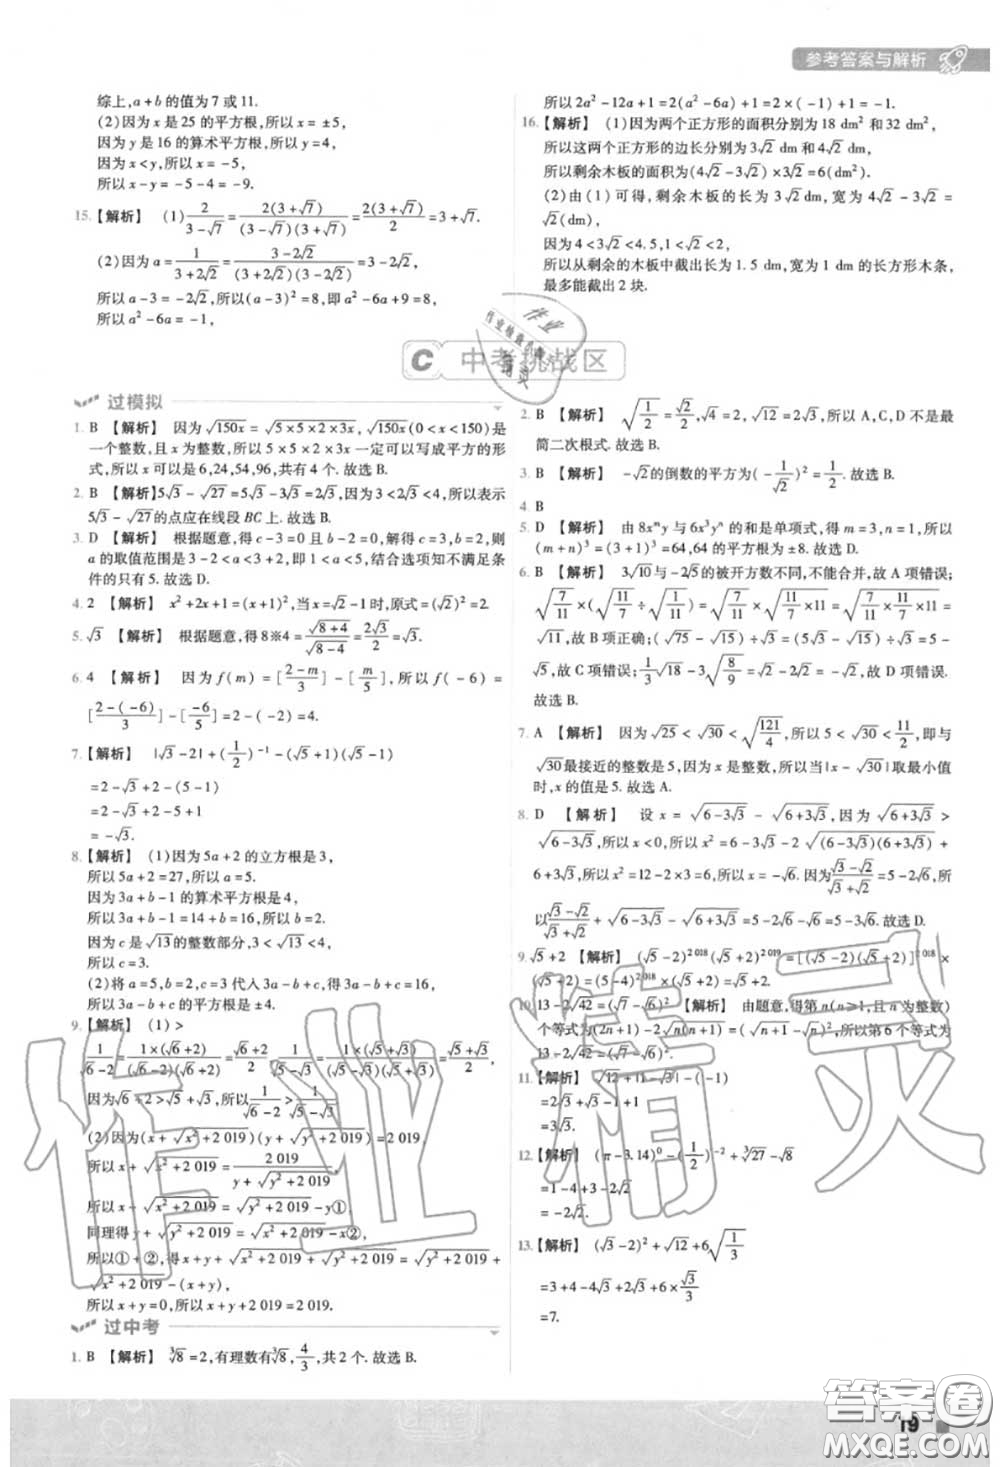 参考答案与解析
综上,a+b的值为7或11.
(2)因为x是25的平方根,所以x=±5,
因为y是16的算术平方根,所以y=4,
因为x<y,所以x=-5,
所以x-y=-5-4=-9.
15.【解析】 (1)2/(3-√7)=2(3+√7)/((3-√7)(3+√7))=2(3+√7)/2=3+√7.
(2)因为a=1/(3+2√2)=(3-2√2)/((3+2√2)(3-2√2))=3-2√2,
所以a-3=-2√2,所以(a-3)²=8,即a²-6a+9=8,
所以a²-6a=-1,
所以2a²-12a+1=2(a²-6a)+1=2×(-1)+1=-1.
16.【解析】 (1)因为两个正方形的面积分别为18 dm²和32 dm²,
所以这两个正方形的边长分别为3√2 dm和4√2 dm,
所以剩余木板的面积为(4√2-3√2)×3√2=6(dm²).
(2)由(1)可得,剩余木板的长为3√2 dm,宽为4√2-3√2=√2(dm),
因为4<3√2<4.5,1<√2<2,
所以从剩余的木板中截出长为1.5 dm,宽为1 dm的长方形木条,
最多能截出2块.
C 中考挑战区
过模拟
1. B 【解析】 因为√150x=√5×5×2×3x,√150x(0<x<150)是
一个整数,且x为整数,所以5×5×2×3x一定可以写成平方的形
式,所以x可以是6,24,54,96,共有4个.故选B.
2. B 【解析】5√3-√27=5√3-3√3=2√3,3<2√3<4,所以表示
5√3-√27的点应在线段BC上.故选B.
3. D 【解析】 根据题意,得c-3=0且b-2=0,解得c=3,b=2,则
a的取值范围是3-2<a<3+2,即1<a<5,结合选项知不满足条
件的只有5.故选D.
4. 2 【解析】 x²+2x+1=(x+1)²,当x=√2-1时,原式=(√2)²=2.
5. √3 【解析】 根据题意,得8※4=√(8+4)/√(8-4)=2√3/2=√3.
6. 4 【解析】 因为f(m)=[(2-m)/3]-[m/5],所以f(-6)=
[(2-(-6))/3]-[-6/5]=2-(-2)=4.
7.【解析】 |√3-2|+(1/2)⁻¹-(√5+1)(√5-1)
=2-√3+2-(5-1)
=2-√3+2-5+1
=-√3.
8.【解析】 (1)因为5a+2的立方根是3,
所以5a+2=27,所以a=5.
因为3a+b-1的算术平方根是4,
所以3a+b-1=14+b=16,所以b=2.
因为c是√13的整数部分,3<√13<4,
所以c=3.
(2)将a=5,b=2,c=3代入3a-b+c,得3a-b+c=16,
所以3a-b+c的平方根是±4.
9.【解析】 (1)>
1/(√6-2)=1×(√6+2)/((√6-2)(√6+2))=(√6+2)/2,1/(√5-√3)=1×(√5+√3)/((√5-√3)(√5+√3))=(√5+√3)/2.
因为√6+2>√5+√3,所以1/(√6-2)>1/(√5-√3).
(2)因为(x+√x²+2 019)(y+√y²+2 019)=2 019,
所以x+√x²+2 019=2 019/(y+√y²+2 019),
所以x+√x²+2 019=√y²+2 019-y①,
同理得y+√y²+2 019=√x²+2 019-x②,
所以①+②,得x+y+√x²+2 019+√y²+2 019=√x²+2 019+√y²+
2 019-(x+y),
所以x+y=0,所以x+y+2 019=2 019.
过中考
1. B 【解析】 ∛8=2,有理数有∛8,4/3,共2个.故选B.
2. B 【解析】 √(1/2)=√2/2,√4=2,√12=2√3,所以A,C,D不是最
简二次根式.故选B.
3. B 【解析】 -√2的倒数的平方为(-1/√2)²=1/2.故选B.
4. B
5. D 【解析】 由8xᵐy与6x³yⁿ的和是单项式,得m=3,n=1,所以
(m+n)³=(3+1)³=64,64的平方根为±8.故选D.
6. B 【解析】 3√10与-2√5的被开方数不同,不能合并,故A项错误;
√(7/11)×(√(7/11)÷√(1/11))=√(7/11)×√(7/11×11)=√(7/11×7/11×11)=
√11,故B项正确;(√75-√15)÷√3=(5√3-√15)÷√3=5-
√5,故C项错误;1/3√18-3√(8/9)=√2-2√2=-√2,故D项错误.
故选B.
7. A 【解析】 因为√25<√30<√(121/4),所以5<√30<11/2,即与
√30最接近的整数是5,所以当整数x使|x-√30|取最小值
时,x的值是5.故选A.
8. D 【解析】 设x=√6-3√3-√6+3√3,因为√6+3√3>
√6-3√3,所以x<0,所以x²=6-3√3-2√(6-3√3)(6+3√3)+
6+3√3,所以x²=12-2×3=6,所以x=-√6.因为(√3-√2)/(√3+√2)=5-2√6,所
以(√3-√2)/(√3+√2)+√6-3√3-√6+3√3=5-2√6-√6=5-3√6.故选D.
9. √5+2 【解析】 (√5-2)²⁰¹⁸(√5+2)²⁰¹⁹=[(√5-2)(√5+2)]²⁰¹⁸×
(√5+2)=(5-4)²⁰¹⁸×(√5+2)=√5+2.
10. 13-2√42=(√7-√6)² 【解析】 由题意,得第n(n≥1,且n为整数)
个等式为(2n+1)-2√n(n+1)=(√n+1-√n)²,所以第6个等式为
13-2√42=(√7-√6)².
11.【解析】 √12+|1-√3|-(-1)
=2√3+√3-1+1
=3√3.
12.【解析】 (π-3.14)⁰-(1/2)⁻²+∛27-√8
=1-4+3-2√2
=-2√2.
13.【解析】 (√3-2)²+√12+6√(1/3)
=3+4-4√3+2√3+6×√3/3
=7.
作业精灵
答案圈
MXQE.COM
19